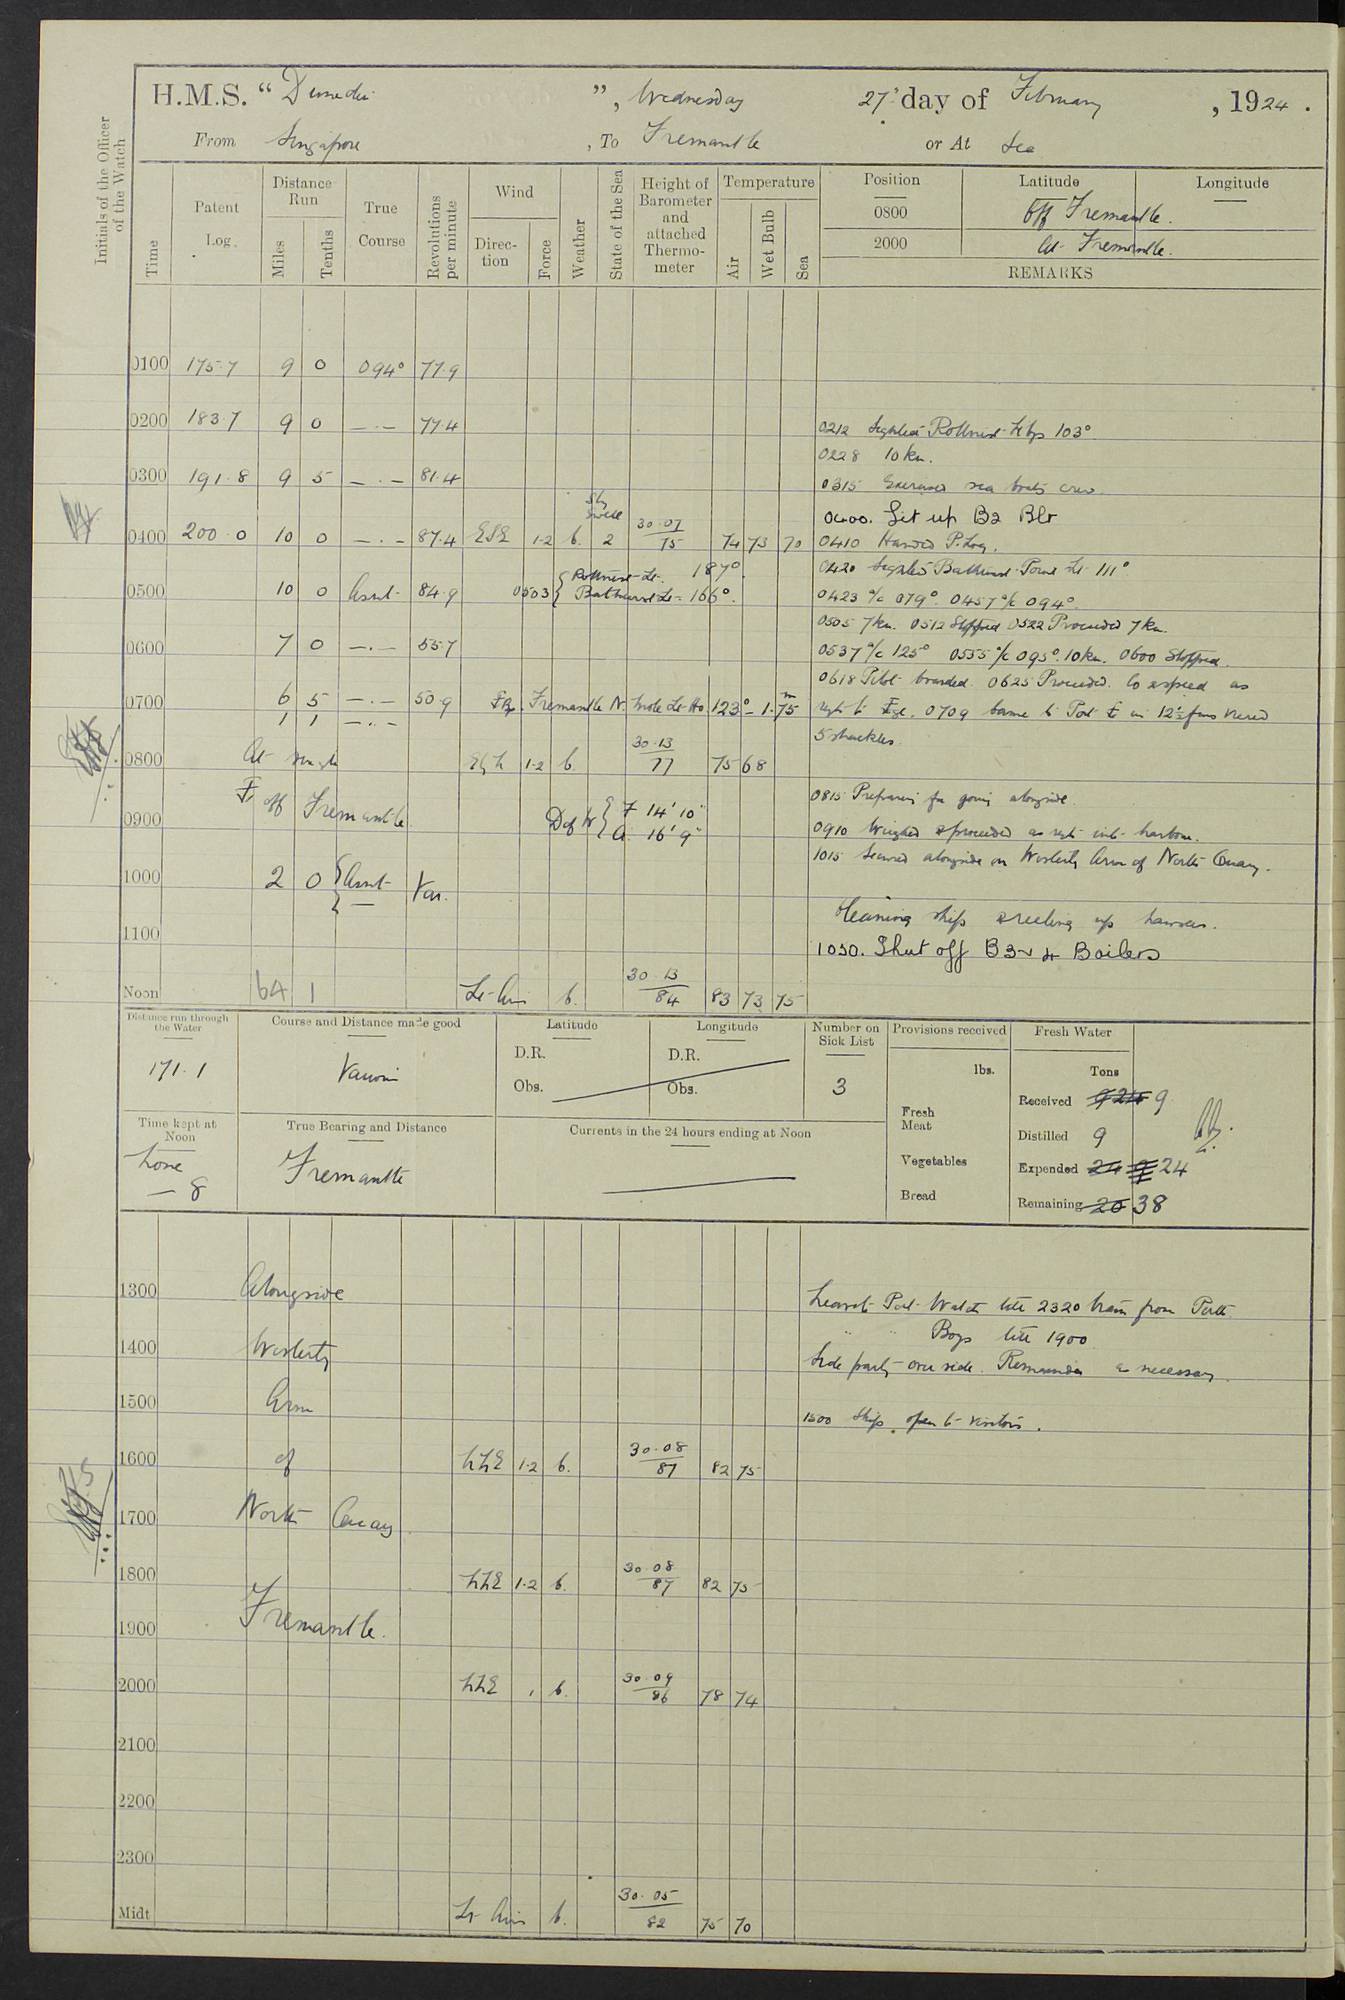 H.M.S. "Dunedin", Wednesday 27th day of February, 1924.
From Singapore, To Fremantle or At Sea
Initials of the Officer of the Watch
Time
Patent Log.
Distance Run
Miles
Tenths
True Course
Revolutions per minute
Wind
Direction
Force
Weather
State of the Sea
Height of Barometer and attached Thermometer
Temperature
Air
Wet Bulb
Sea
Position Latitude Longitude
0800 Off Fremantle.
2000 At Fremantle.
REMARKS
0100 175.7 9 0 094° 77.9
0200 183.7 9 0 —.— 77.4
0212 Sighted Rottnest Lt bg 103°
0228 10 kn.
0300 191.8 9 5 —.— 81.4
0315 Exercised sea boats crew.
Sly swell
0400. Lit up B2 Blr
0400 200.0 10 0 —.— 87.4 ESE 1-2 b. 2 30.07 / 75 74 73 70
0410 Handed P. Log.
0420 Sighted Bathurst Point Lt 111°
0500 10 0 Asnt. 84.9 0503 { Rottnest Lt. 187°. Bathurst Lt = 166°.
0423 a/c 079°. 0457 a/c 094°.
0505 7 kn. 0512 Stopped 0522 Proceeded 7 kn.
0600 7 0 —.— 55.7
0537 a/c 125° 0555 a/c 095°. 10 kn. 0600 Stopped.
0618 Pilot boarded. 0625 Proceeded. Co & speed as
0700 6 5 —.— 50.9 Fremantle N. Mole Lt Ho. 123° - 1.75 m
1 1 —.—
reqte to 0709 Came to Port in 12½ fms veered
5 shackles.
0800 At single EbN 1-2 b. 30.13 / 77 75 68
off Fremantle.
0815 Preparing for going alongside.
0900 D of W { F 14' 10" A 16' 9"
0910 Weighed & proceeded as reqte into harbour.
1015 Secured alongside on Westerly Arm of North Quay.
1000 2 0 { Asnt — Var.
Cleaning ship & reeling up hawsers.
1100
1030. Shut off B3 & 4 Boilers
Noon 64 1 Lt Airs b. 30.13 / 84 83 73 75
Distance run through the Water
171.1
Course and Distance made good
Various
Latitude
D.R.
Obs.
Longitude
D.R.
Obs.
Number on Sick List
3
Provisions received
lbs.
Fresh Meat
Vegetables
Bread
Fresh Water
Tons
Received 9 24 9
Distilled 9
Expended 24 9 24
Remaining 20 38
Time kept at Noon
Zone
— 8
True Bearing and Distance
Fremantle
Currents in the 24 hours ending at Noon
1300 Alongside
Leave to Port Watch till 2320 train from Perth.
" " Boys till 1900
1400 Westerly
Side party over side. Remainder as necessary.
1500 Arm
1500 Ship open to visitors.
1600 of NNE 1-2 b. 30.08 / 87 82 75
1700 North Quay
1800 NNE 1-2 b. 30.08 / 87 82 75
1900 Fremantle.
2000 NNE 1 b. 30.09 / 86 78 74
2100
2200
2300
Midt Lt Airs b. 30.05 / 82 75 70